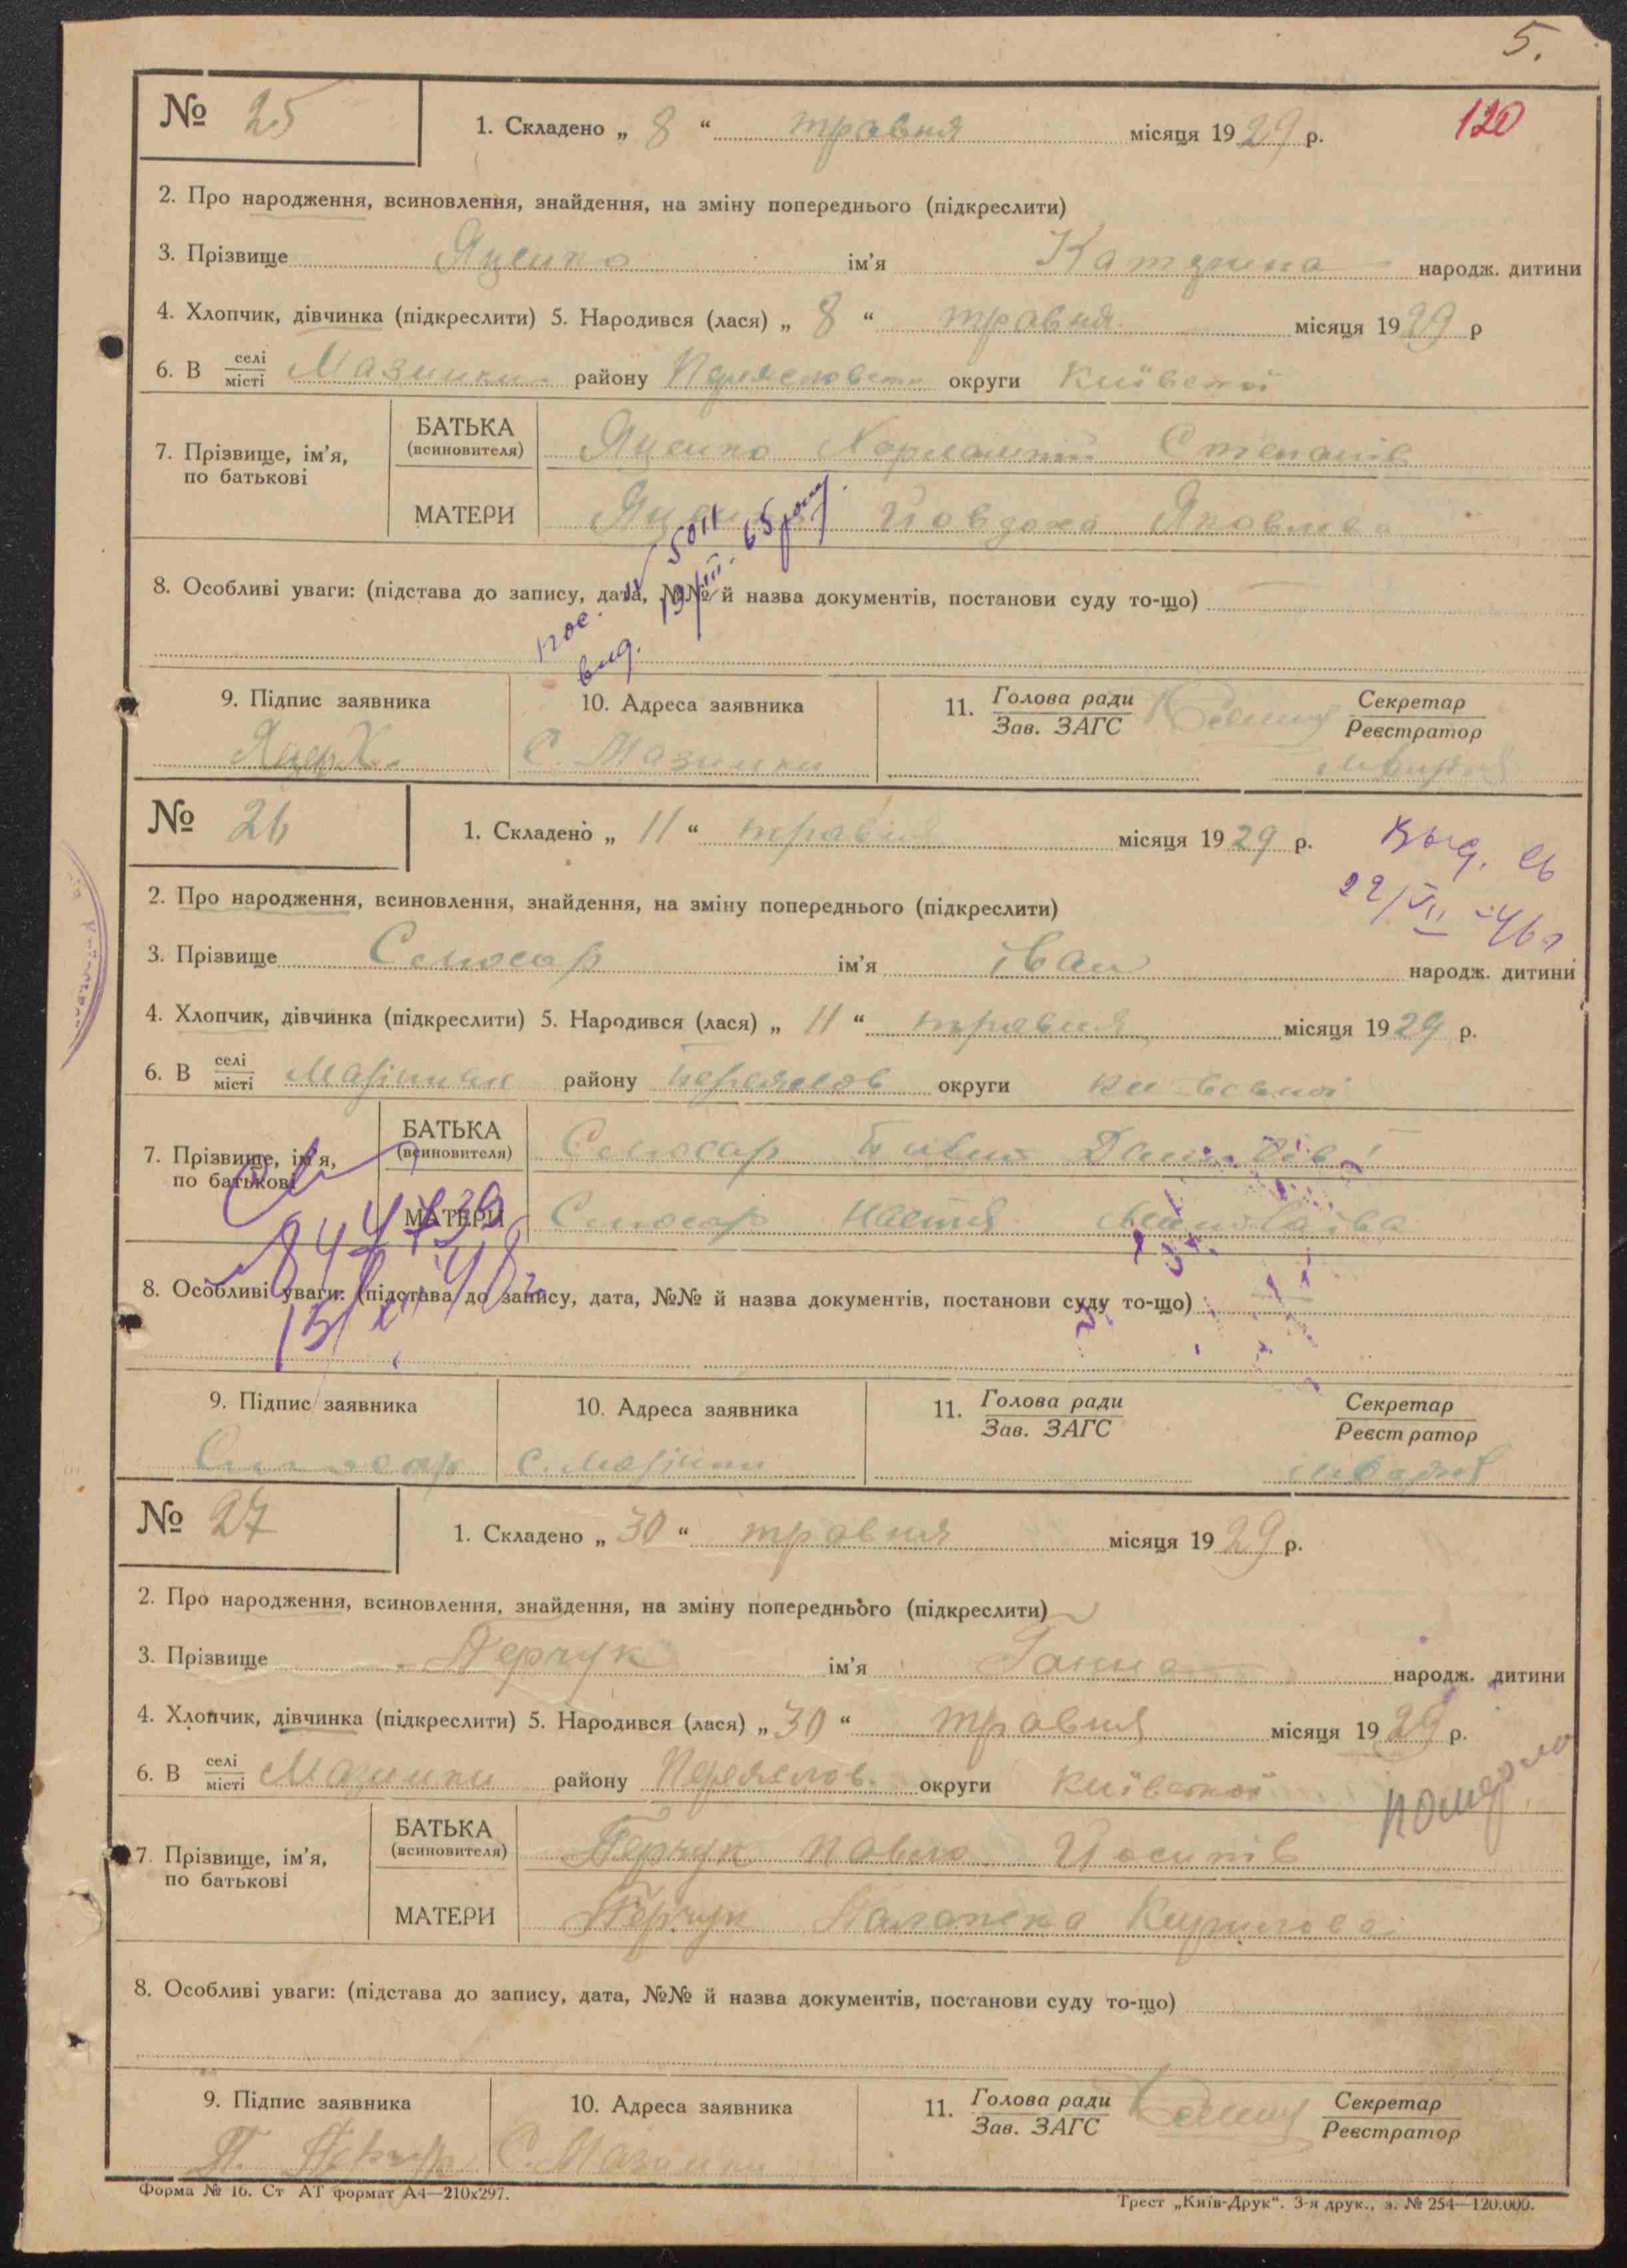 5.
120
№ 25
1. Складено „ 8 “ травня місяця 1929 р.
2. Про народження, всиновлення, знайдення, на зміну попереднього (підкреслити)
3. Прізвище Яценко ім’я Катерина народж. дитини
4. Хлопчик, дівчинка (підкреслити) 5. Народився (лася) „ 8 “ травня місяця 1929 р
6. В селі/місті Мазинки району округи Київської
7. Прізвище, ім’я, по батькові
БАТЬКА (всиновителя) Яценко Харлампій Степанів
МАТЕРИ Яценко Йовдоха Яковлева
пос. 5011
вид. 19/III. 65 року.
8. Особливі уваги: (підстава до запису, дата, №№ й назва документів, постанови суду то-що)
9. Підпис заявника
10. Адреса заявника
11. Голова ради/Зав. ЗАГС
Секретар/Реєстратор
С. Мазинки
№ 26
1. Складено „ 11 “ травня місяця 1929 р.
Выд. св
22/VII-46г
2. Про народження, всиновлення, знайдення, на зміну попереднього (підкреслити)
3. Прізвище Слюсар ім’я Іван народж. дитини
4. Хлопчик, дівчинка (підкреслити) 5. Народився (лася) „ 11 “ травня місяця 1929 р.
6. В селі/місті району Переяслов округи
7. Прізвище, ім’я, по батькові
БАТЬКА (всиновителя) Слюсар
МАТЕРИ Слюсар Настя
8. Особливі уваги: (підстава до запису, дата, №№ й назва документів, постанови суду то-що)
9. Підпис заявника
10. Адреса заявника
11. Голова ради/Зав. ЗАГС
Секретар/Реєстратор
Слюсар
№ 27
1. Складено „ 30 “ травня місяця 1929 р.
2. Про народження, всиновлення, знайдення, на зміну попереднього (підкреслити)
3. Прізвище Перчук ім’я Ганна народж. дитини
4. Хлопчик, дівчинка (підкреслити) 5. Народився (лася) „ 30 “ травня місяця 1929 р.
6. В селі/місті Мазинки району Переяслов. округи Київської
померла
7. Прізвище, ім’я, по батькові
БАТЬКА (всиновителя) Перчук Павло Йосипів
МАТЕРИ Перчук Палажка Кирилова
8. Особливі уваги: (підстава до запису, дата, №№ й назва документів, постанови суду то-що)
9. Підпис заявника
10. Адреса заявника
11. Голова ради/Зав. ЗАГС
Секретар/Реєстратор
П. Перчук
С. Мазинки
Форма № 16. Ст АТ формат А4—210х297.
Трест „Київ-Друк“. 3-я друк., з. № 254—120.000.